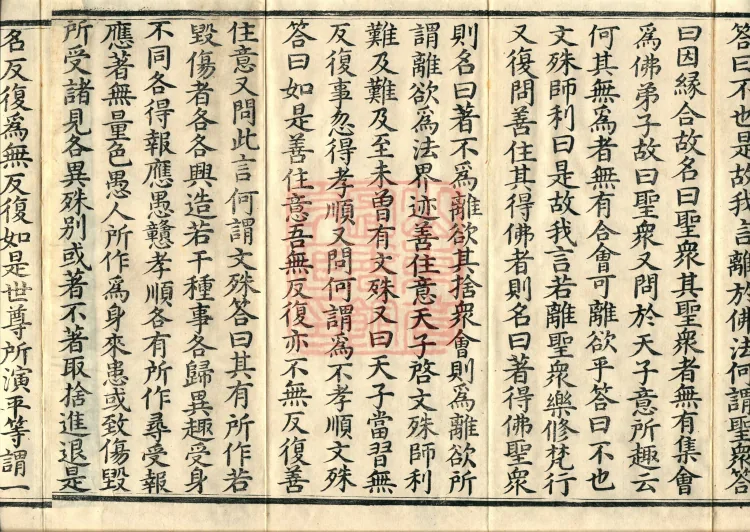 答曰不也是故我言離於佛法何謂聖衆答
曰因緣合故名曰聖衆其聖衆者無有集會
爲佛弟子故曰聖衆又問於天子意所趣云
何其無爲者無有合會可離欲乎答曰不也
文殊師利曰是故我言若離聖衆樂修梵行
又復問善住其得佛者則名曰著得佛聖衆
則名曰著不爲離欲其捨衆會則爲離欲所
謂離欲爲法界迹善住意天子啓文殊師利
難及難及至未曾有文殊又曰天子當習無
反復事忽得孝順又問何謂爲不孝順文殊
答曰如是善住意吾無反復亦不無反復善
住意又問此言何謂文殊答曰其有所作若
毀傷者各各興造若干種事各歸異趣受身
不同各得報應愚戇孝順各有所作尋受報
應著無量色愚人所作爲身來患或致傷毀
所受諸見各異殊别或著不著取捨進退是
名反復爲無反復如是世尊所演平等謂一